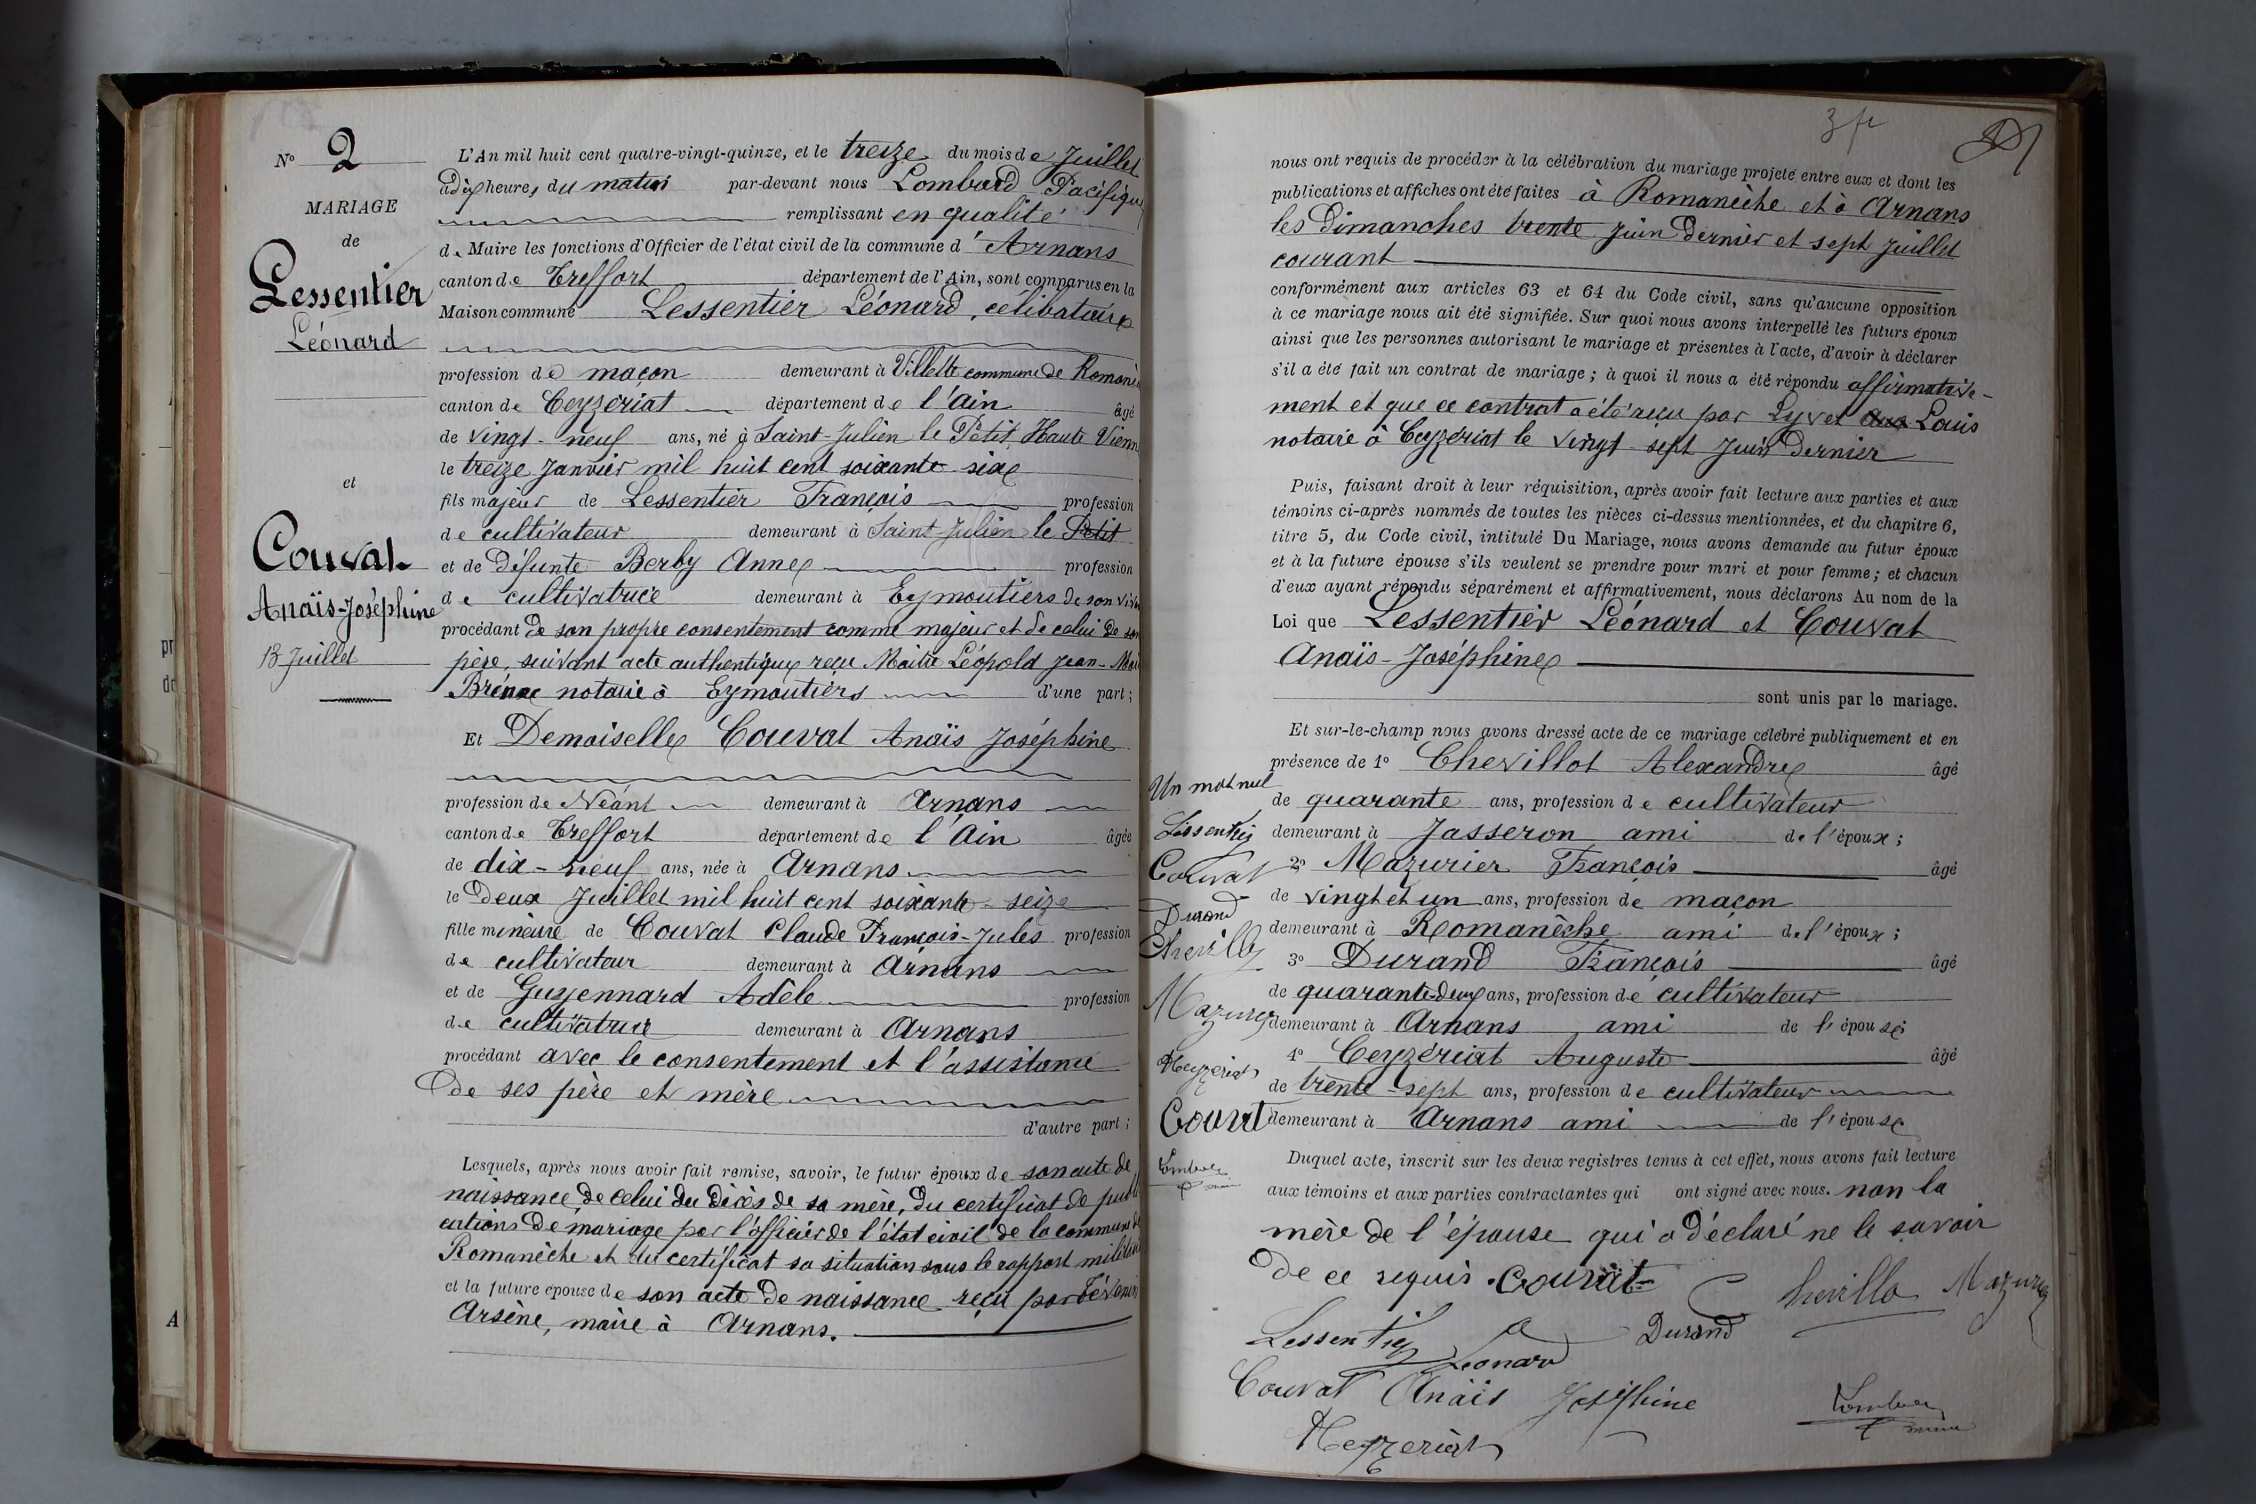 N° 2
MARIAGE
de
Lessentier
Léonard
et
Couval
Anaïs-Joséphine
13 Juillet
L'An mil huit cent quatre-vingt-quinze, et le treize du mois de Juillet
à dix heures du matin par-devant nous Lombard Pacifique
remplissant en qualité
de Maire les fonctions d'Officier de l'état civil de la commune d'Arnans
canton de Treffort département de l'Ain, sont comparus en la
Maison commune Lessentier Léonard, célibataire
profession de maçon demeurant à Villette commune de Romanè
canton de Ceyzériat département de l'Ain âgé
de vingt-neuf ans, né à Saint-Julien le Petit Haute Vienn
le treize Janvier mil huit cent soixante-six
fils majeur de Lessentier François profession
de cultivateur demeurant à Saint Julien le Petit
et de défunte Berby Anne profession
de cultivatrice demeurant à Eymoutiers de son viva
procédant de son propre consentement comme majeur et de celui de son
père, suivant acte authentique reçu Maître Léopold Jean-
notaire à Eymoutiers d'une part;
Et Demoiselle Couval Anaïs Joséphine
profession de Néant demeurant à Arnans
canton de Treffort département de l'Ain âgée
de dix-neuf ans, née à Arnans
le Deux Juillet mil huit cent soixante-seize
fille mineure de Couvat Claude François-Jules profession
de cultivateur demeurant à Arnans
et de Guyennard Adèle profession
de cultivatrice demeurant à Arnans
procédant avec le consentement et l'assistance
de ses père et mère
d'autre part;
Lesquels, après nous avoir fait remise, savoir, le futur époux de son acte de
naissance, de celui du décès de sa mère, du certificat de publi
cations de mariage par l'officier de l'état civil de la commune de
Romanèche et du certificat sa situation sous le rapport militaire
et la future épouse de son acte de naissance reçu par
Arsène, maire à Arnans.
3 fe
nous ont requis de procéder à la célébration du mariage projeté entre eux et dont les
publications et affiches ont été faites à Romanèche et à Arnans
les Dimanches trente Juin dernier et sept Juillet
courant
conformément aux articles 63 et 64 du Code civil, sans qu'aucune opposition
à ce mariage nous ait été signifiée. Sur quoi nous avons interpellé les futurs époux
ainsi que les personnes autorisant le mariage et présentes à l'acte, d'avoir à déclarer
s'il a été fait un contrat de mariage; à quoi il nous a été répondu affirmative-
ment et que ce contrat a été reçu par Lyvet Louis
notaire à Ceyzériat le vingt-sept Juin dernier
Puis, faisant droit à leur réquisition, après avoir fait lecture aux parties et aux
témoins ci-après nommés de toutes les pièces ci-dessus mentionnées, et du chapitre 6,
titre 5, du Code civil, intitulé Du Mariage, nous avons demandé au futur époux
et à la future épouse s'ils veulent se prendre pour mari et pour femme; et chacun
d'eux ayant répondu séparément et affirmativement, nous déclarons Au nom de la
Loi que Lessentier Léonard et Couvat
Anaïs-Joséphine
sont unis par le mariage.
Et sur-le-champ nous avons dressé acte de ce mariage célébré publiquement et en
présence de 1° Chevillot Alexandre âgé
de quarante ans, profession de cultivateur
demeurant à Jasseron ami de l'époux;
2° Mazurier François âgé
de vingt et un ans, profession de maçon
demeurant à Romanèche ami de l'époux;
3° Durand François âgé
de quarante-deux ans, profession de cultivateur
demeurant à Arnans ami de l'épouse
4° Ceyzériat Auguste âgé
de trente-sept ans, profession de cultivateur
demeurant à Arnans ami de l'épouse
Duquel acte, inscrit sur les deux registres tenus à cet effet, nous avons fait lecture
aux témoins et aux parties contractantes qui ont signé avec nous. non la
mère de l'épouse qui a déclaré ne le savoir
de ce requis. Couvat
Chevillo Mazurie
Lessentier Léonard Durand
Couvat Anaïs Joséphine
Ceyzeriat
Un mot nul
Lessentier
Couvat
Durand
Chevillo
Mazurier
Ceyzeriat
Couvat